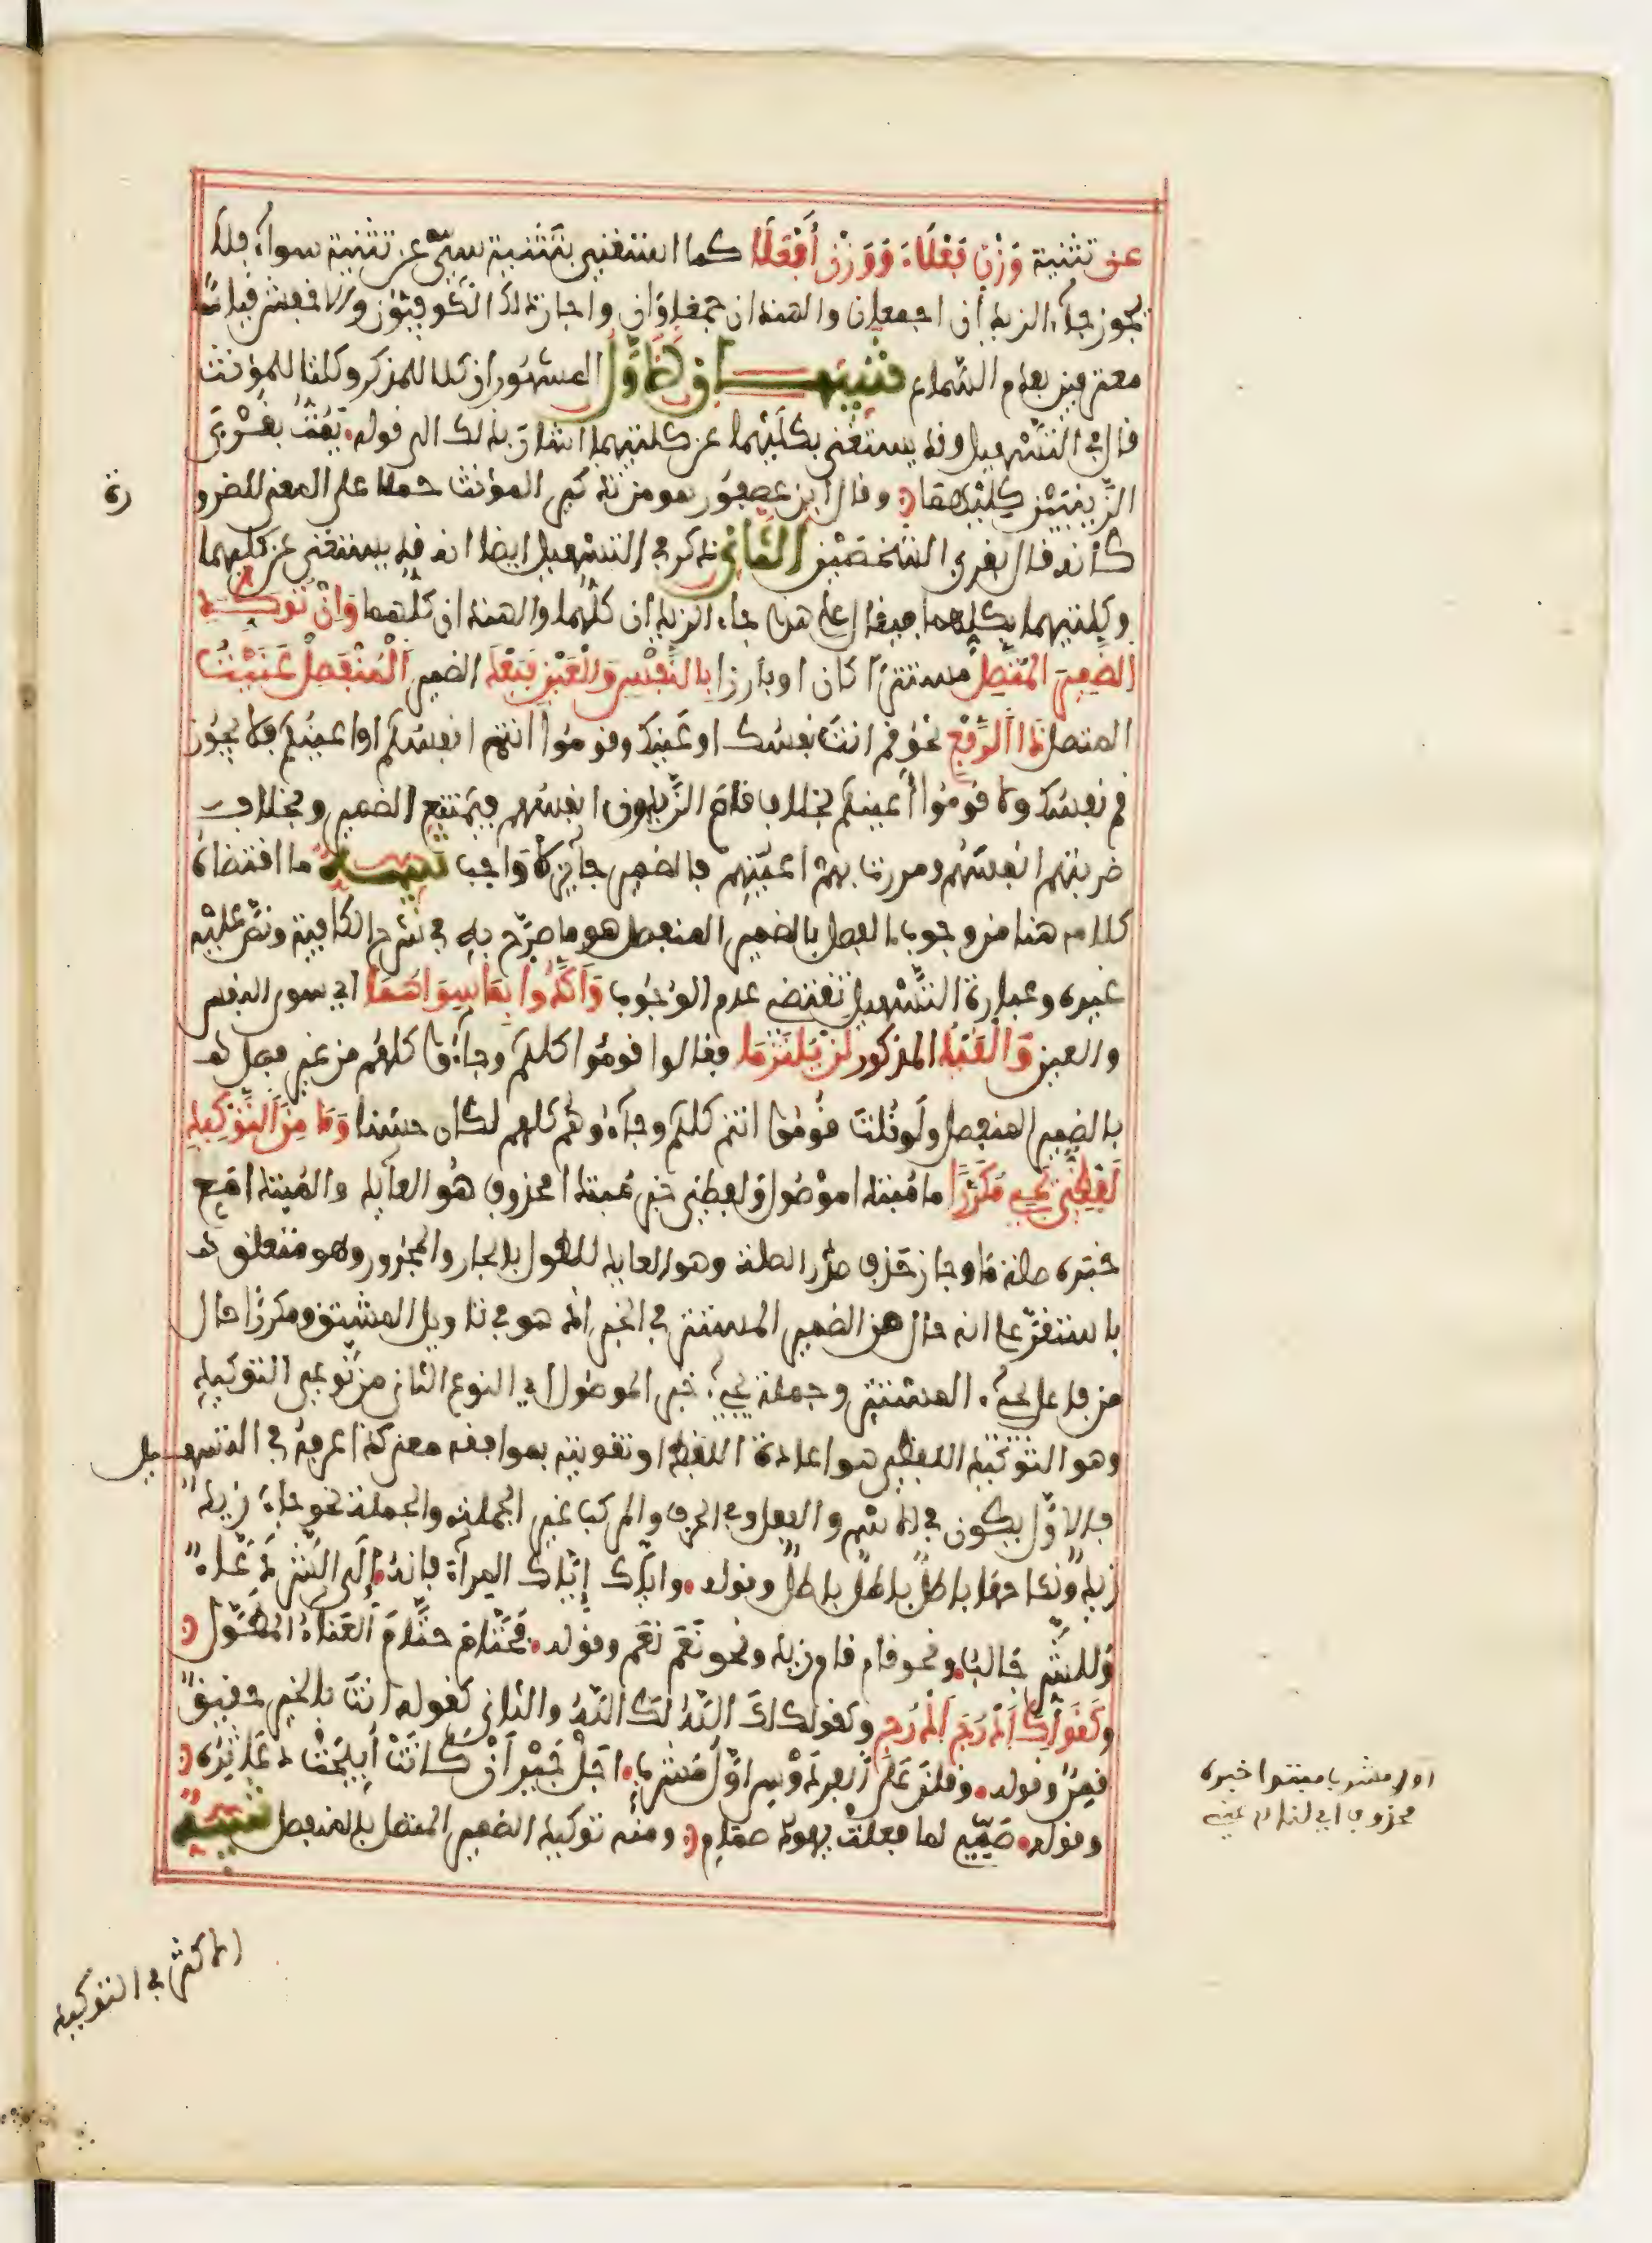 عن تثنية وَزْنِ فَعْلَاءَ وَوَزْنِ أَفْعَلَا كما استغنى بتثنية سِيٍّ عن تثنية سواء فلا
يجوز جاء الزيدان اجمعان والهندان جمعاوان واجاز ذلك الكوفيون والاخفش قياسا
معترفين بعدم السماع تنبيهان الاول المشهور ان كلا للمذكر وكلتا للمؤنث
قال في التسهيل وقد يستغنى بكليهما عن كلتيهما اشار بذلك الى قوله يمت بقربى
الزينبين كليهما وقال ابن عصفور هو من تذكير المؤنث حملا على المعنى للضرو
رة
كأنه قال بقربى الشخصين الثاني ذكر في التسهيل ايضا انه قد يستغنى عن كليهما
وكلتيهما بكلهما فيقال على هذا جاء الزيدان كلهما والهندان كلهما وَإِنْ تُؤَكِّدِ
الضمير المتصل مستترا كان او بارزا بالنفس والعين فبعد الضمير المنفصل عَنَيْتُ
المتصل ذا الرفع نحو قم انت نفسك او عينك وقوموا انتم انفسكم او اعينكم فلا يجوز
قم نفسك ولا قوموا أعينكم بخلاف قام الزيدون انفسهم فيمتنع الضمير وبخلاف
ضربتهم انفسهم ومررت بهم اعينهم فالضمير جائز لا واجب تنبيه ما اقتضاه
كلامه هنا من وجوب الفصل بالضمير المنفصل هو ما صرح به في شرح الكافية ونص عليه
غيره وعبارة التسهيل تقتضي عدم الوجوب وَأَكَّدُوا بِمَا سِوَاهُمَا اي سوى النفس
والعين وَالْقَيْدُ المذكور لن يلتزما فقالوا قوموا كلكم وجاءوا كلهم من غير فصل
بالضمير المنفصل ولو قلت قوموا انتم كلكم وجاءوا هم كلهم لكان حسنا وَمَا مِنَ التَّوْكِيدِ
لَفْظِيٌّ يَجِي مُكَرَّرًا ما مبتدا موصول ولفظي خبر مبتدا محذوف هو العائد والمبتدا مع
خبره صلة ما وجاز حذف صدر الصلة وهو العائد للطول بالجار والمجرور وهو متعلق
باستقر على انه حال من الضمير المستتر في الخبر اذ هو في تاويل المشتق ومكررا حال
من فاعل يجيء المستتر وجملة يجيء خبر الموصول اي النوع الثاني من نوعي التوكيد
وهو التوكيد اللفظي هو اعادة اللفظ او تقويته بموافقه معنى كذا عرفه في التسهيل
فالاول يكون في الاسم والفعل وفي الحرف والمركب غير الجملة والجملة نحو جاء زيد
زيد ونكاحها باطل باطل باطل وقوله واياك إياك المراء فانه إلى الشر دعاء
وللشر جالب ونحو قام قام زيد ونحو نعم نعم وقوله فحتام حتام العناء المطول
وكقولك ادرجي ادرجي وكقولك لك الله لك الله والثاني كقوله انت بالخير حقيق
قمن وقوله وقلن على الفردوس اول مشرب اجل جير ان كانت أبيحت دعاثره
وقوله صمي لما فعلت يهود صمام ومنه توكيد الضمير المتصل بالمنفصل تنبيه
اول مشرب مبتدا خبره
محذوف اي لنا
الاكثر في التوكيد